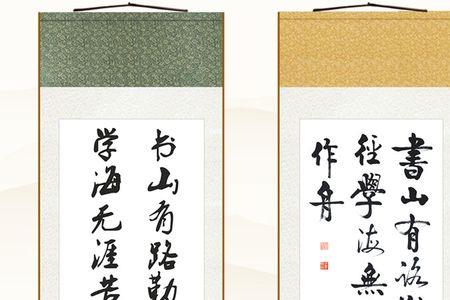 书山有路勤
学海无涯苦
書山有路
徑學海無
作舟